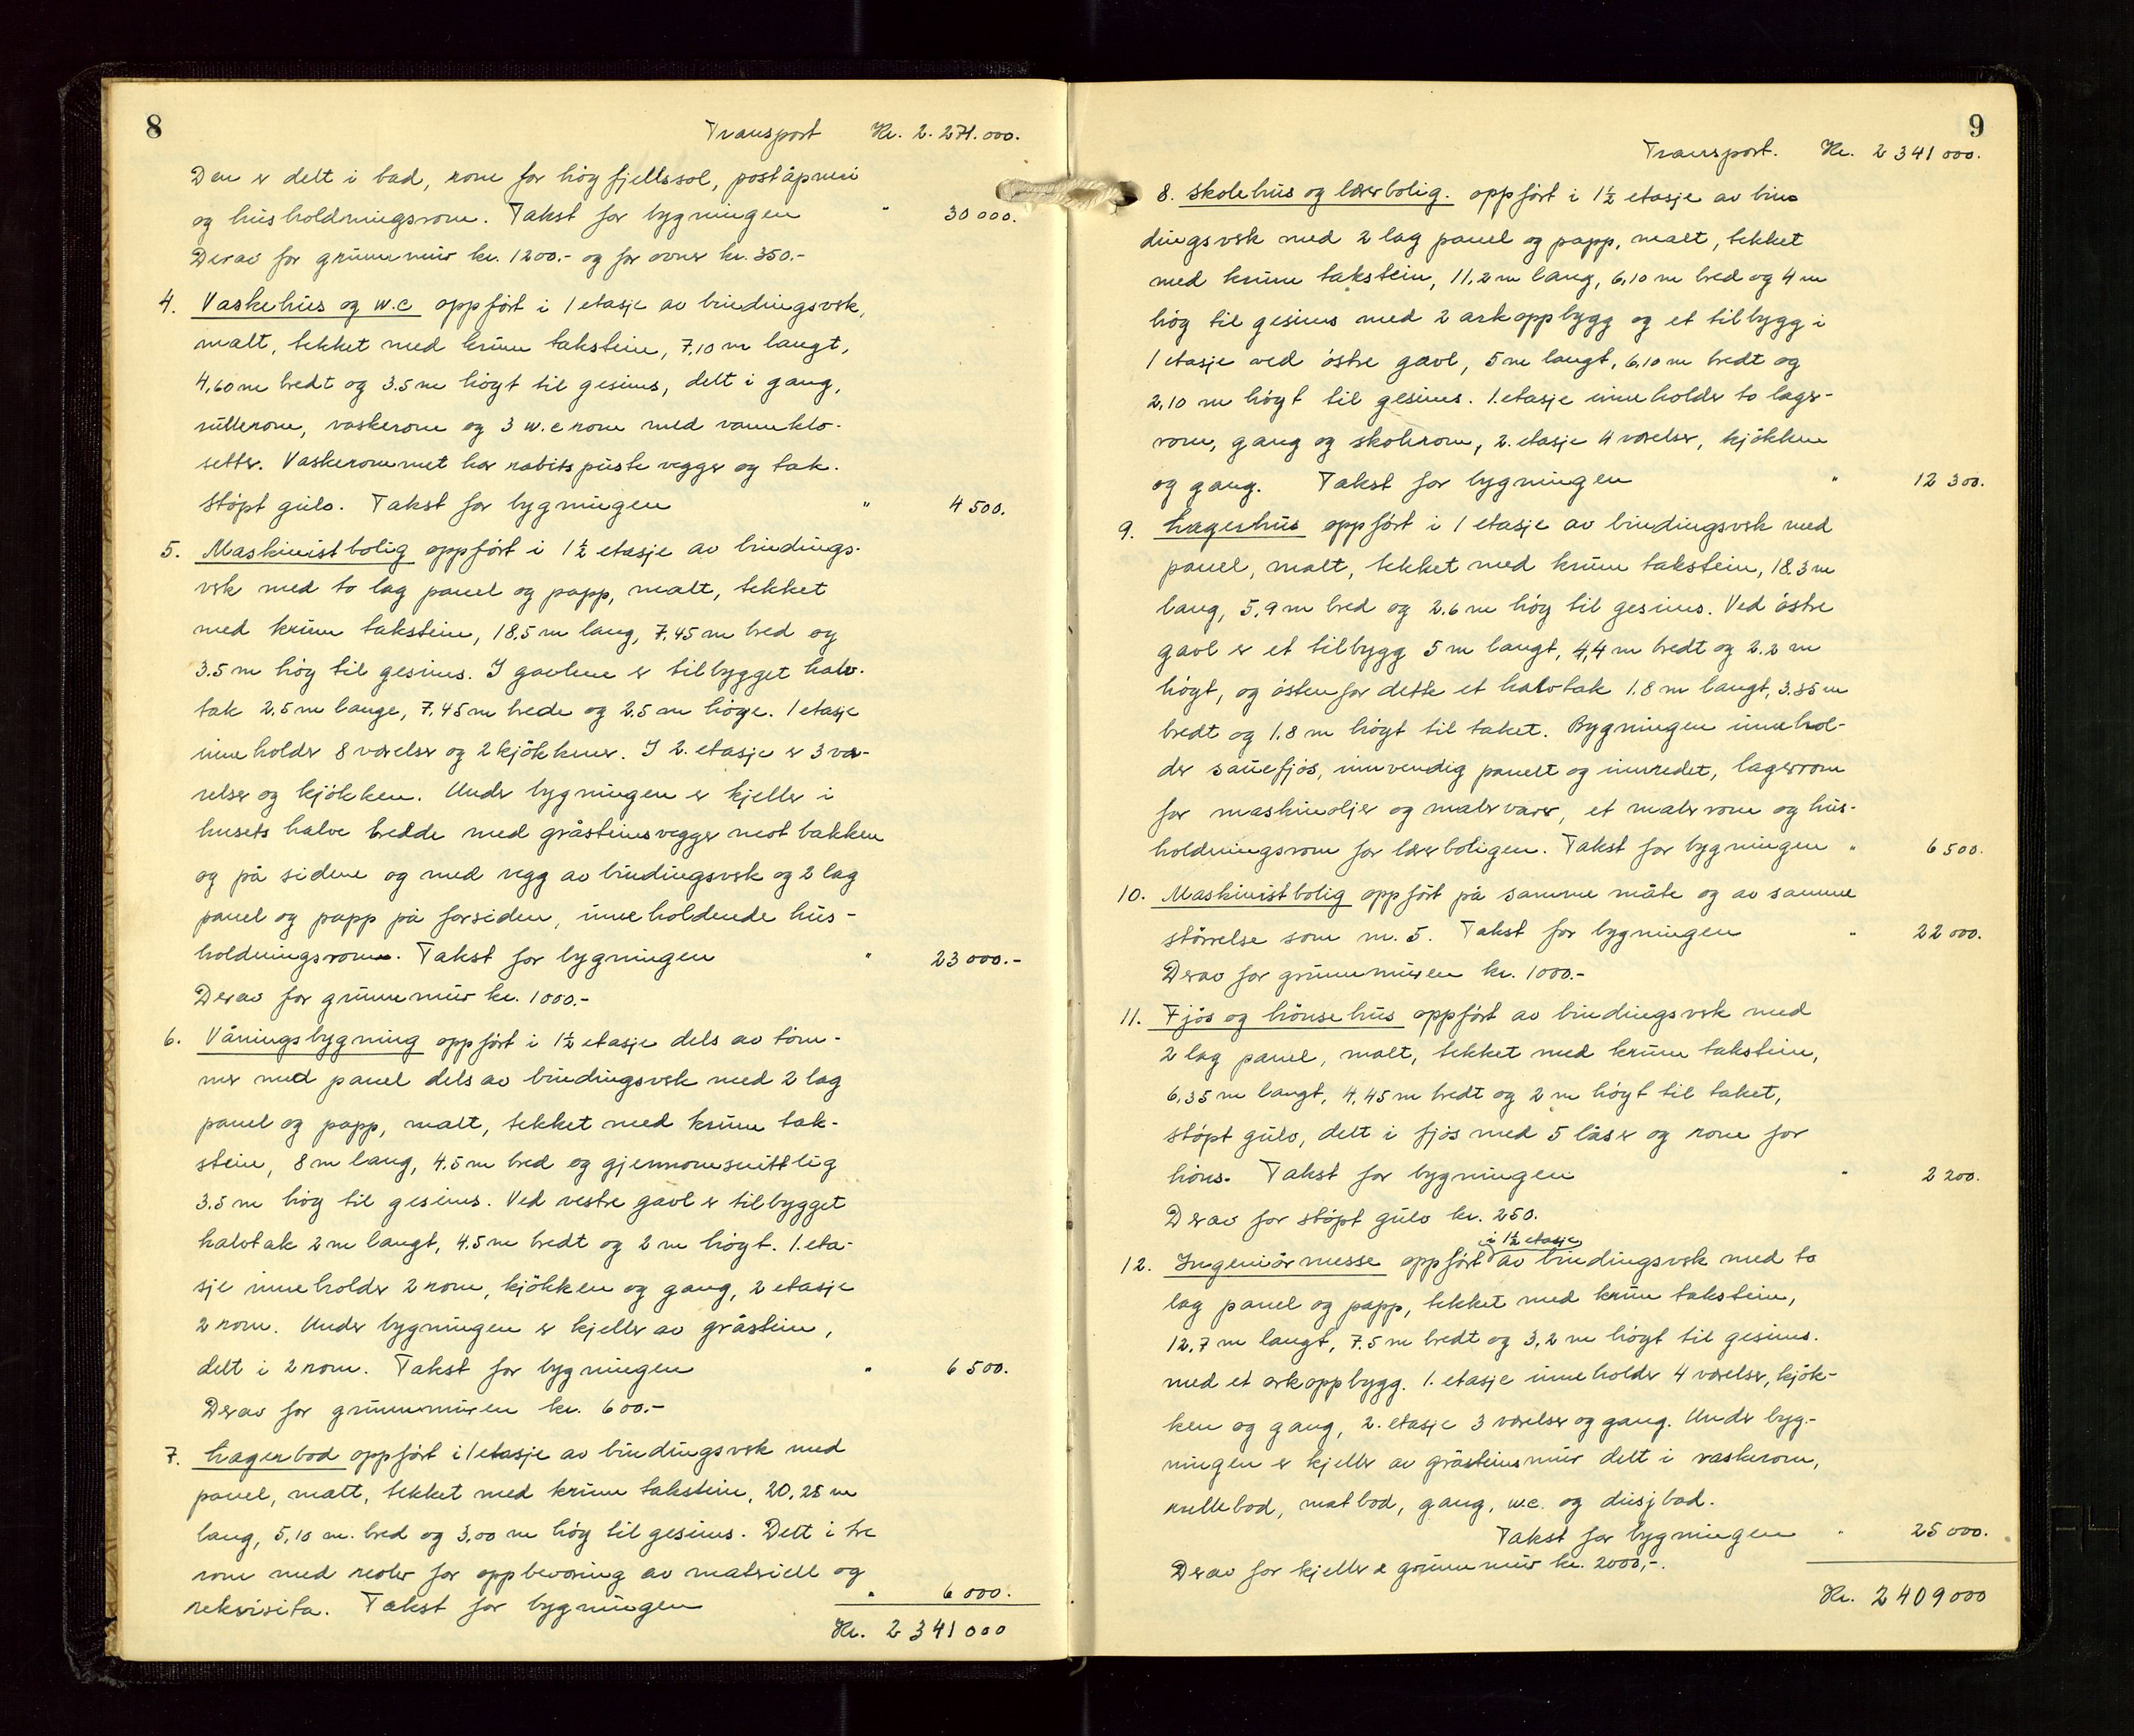 8
Transport Kr. 2.271.000.
Den er delt i bad, rom for høgfjellssol, poståpneri
og husholdningsrom. Takst for bygningen " 30 000.
Derav for grunnmur kr. 1200.- og for ovner kr. 350.-
4. Vaskehus og w.c oppført i 1 etasje av bindingsverk,
malt, tekket med krum takstein, 7,10 m langt,
4,60 m bredt og 3.5 m høgt til gesims, delt i gang,
rullerom, vaskerom og 3 w.c rom med vannklo-
setter. Vaskerommet har rabitspuste vegger og tak.
Støpt gulv. Takst for bygningen " 4 500.
5. Maskinistbolig oppført i 1½ etasje av bindings-
verk med to lag panel og papp, malt, tekket
med krum takstein, 18.5 m lang, 7.45 m bred og
3.5 m høg til gesims. I gavlene er tilbygget halv-
tak 2.5 m lange, 7.45 m brede og 2.5 m høge. 1 etasje
inneholder 8 værelser og 2 kjøkkener. I 2. etasje er 3 væ-
relser og kjøkken. Under bygningen er kjeller i
husets halve bredde med gråsteinsvegger mot bakken
og på sidene og med vegg av bindingsverk og 2 lag
panel og papp på forsiden, inneholdende hus-
holdningsrom. Takst for bygningen " 23 000.-
Derav for grunnmur kr. 1000.-
6. Våningsbygning oppført i 1½ etasje dels av tøm-
mer med panel dels av bindingsverk med 2 lag
panel og papp, malt, tekket med krum tak-
stein, 8 m lang, 4.5 m bred og gjennomsnittlig
3.5 m høg til gesims. Ved vestre gavl er tilbygget
halvtak 2 m langt, 4.5 m bredt og 2 m høgt. 1. eta-
sje inneholder 2 rom, kjøkken og gang, 2 etasje
2 rom. Under bygningen er kjeller av gråstein,
delt i 2 rom. Takst for bygningen " 6 500.
Derav for grunnmuren kr. 600.-
7. Lagerbod oppført i 1 etasje av bindingsverk med
panel, malt, tekket med krum takstein, 20,25 m
lang, 5,10 m. bred og 3,00 m høg til gesims. Delt i tre
rom med reoler for oppbevaring av materiell og
rekvisita. Takst for bygningen " 6 000.
Kr. 2 341 000
9
Transport. Kr. 2 341 000.
8. Skolehus og lærerbolig. oppført i 1½ etasje av bin-
dingsverk med 2 lag panel og papp, malt, tekket
med krum takstein, 11,2 m lang, 6,10 m bred og 4 m
høg til gesims med 2 arkoppbygg og et tilbygg i
1 etasje ved østre gavl, 5 m langt, 6,10 m bredt og
2,10 m høgt til gesims. 1. etasje inneholder to lager-
rom, gang og skolerom, 2. etasje 4 værelser, kjøkken
og gang. Takst for bygningen " 12 300.
9. Lagerhus oppført i 1 etasje av bindingsverk med
panel, malt, tekket med krum takstein, 18.3 m
lang, 5,9 m bred og 2.6 m høg til gesims. Ved østre
gavl er et tilbygg 5 m langt, 4,4 m bredt og 2.2 m
høgt, og østenfor dette et halvtak 1.8 m langt, 3.35 m
bredt og 1.8 m høgt til taket. Bygningen innehol-
der sauefjøs, innvendig panelt og innredet, lagerrom
for maskinoljer og malervarer, et malerrom og hus-
holdningsrom for lærerboligen. Takst for bygningen " 6 500.
10. Maskinistbolig oppført på samme måte og av samme
størrelse som nr. 5. Takst for bygningen " 22 000.
Derav for grunnmuren kr. 1000.-
11. Fjøs og hønsehus oppført av bindingsverk med
2 lag panel, malt, tekket med krum takstein,
6,35 m langt, 4,45 m bredt og 2 m høgt til taket,
støpt gulv, delt i fjøs med 5 båser og rom for
høns. Takst for bygningen " 2 200.
Derav for støpt gulv kr. 250.
i 1½ etasje
12. Ingeniørmesse oppført av bindingsverk med to
lag panel og papp, tekket med krum takstein,
12,7 m langt, 7.5 m bredt og 3,2 m høgt til gesims.
med et arkoppbygg. 1. etasje inneholder 4 værelser, kjøk-
ken og gang, 2. etasje 3 værelser og gang. Under byg-
ningen er kjeller av gråsteinsmur delt i vaskerom,
rullebod, matbod, gang, w.c. og dusjbad.
Takst for bygningen " 25 000.
Derav for kjeller & grunnmur kr. 2000,-.
Kr. 2 409 000